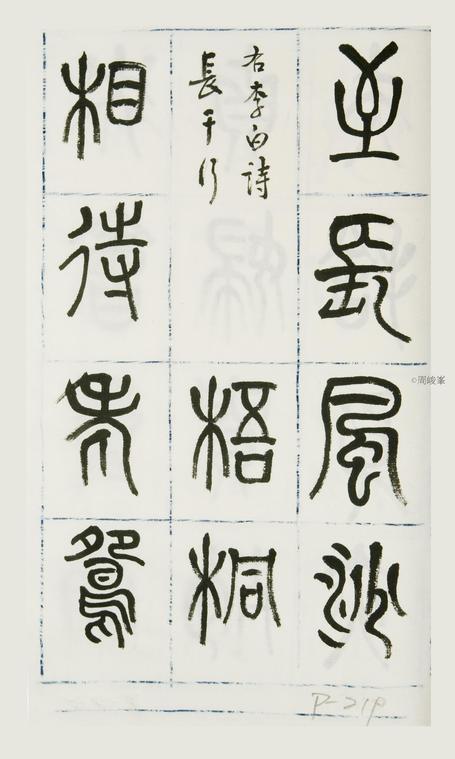 至長風沙
右李白詩
長干行
梧桐
相待老鴛
P-219
©周峻峯